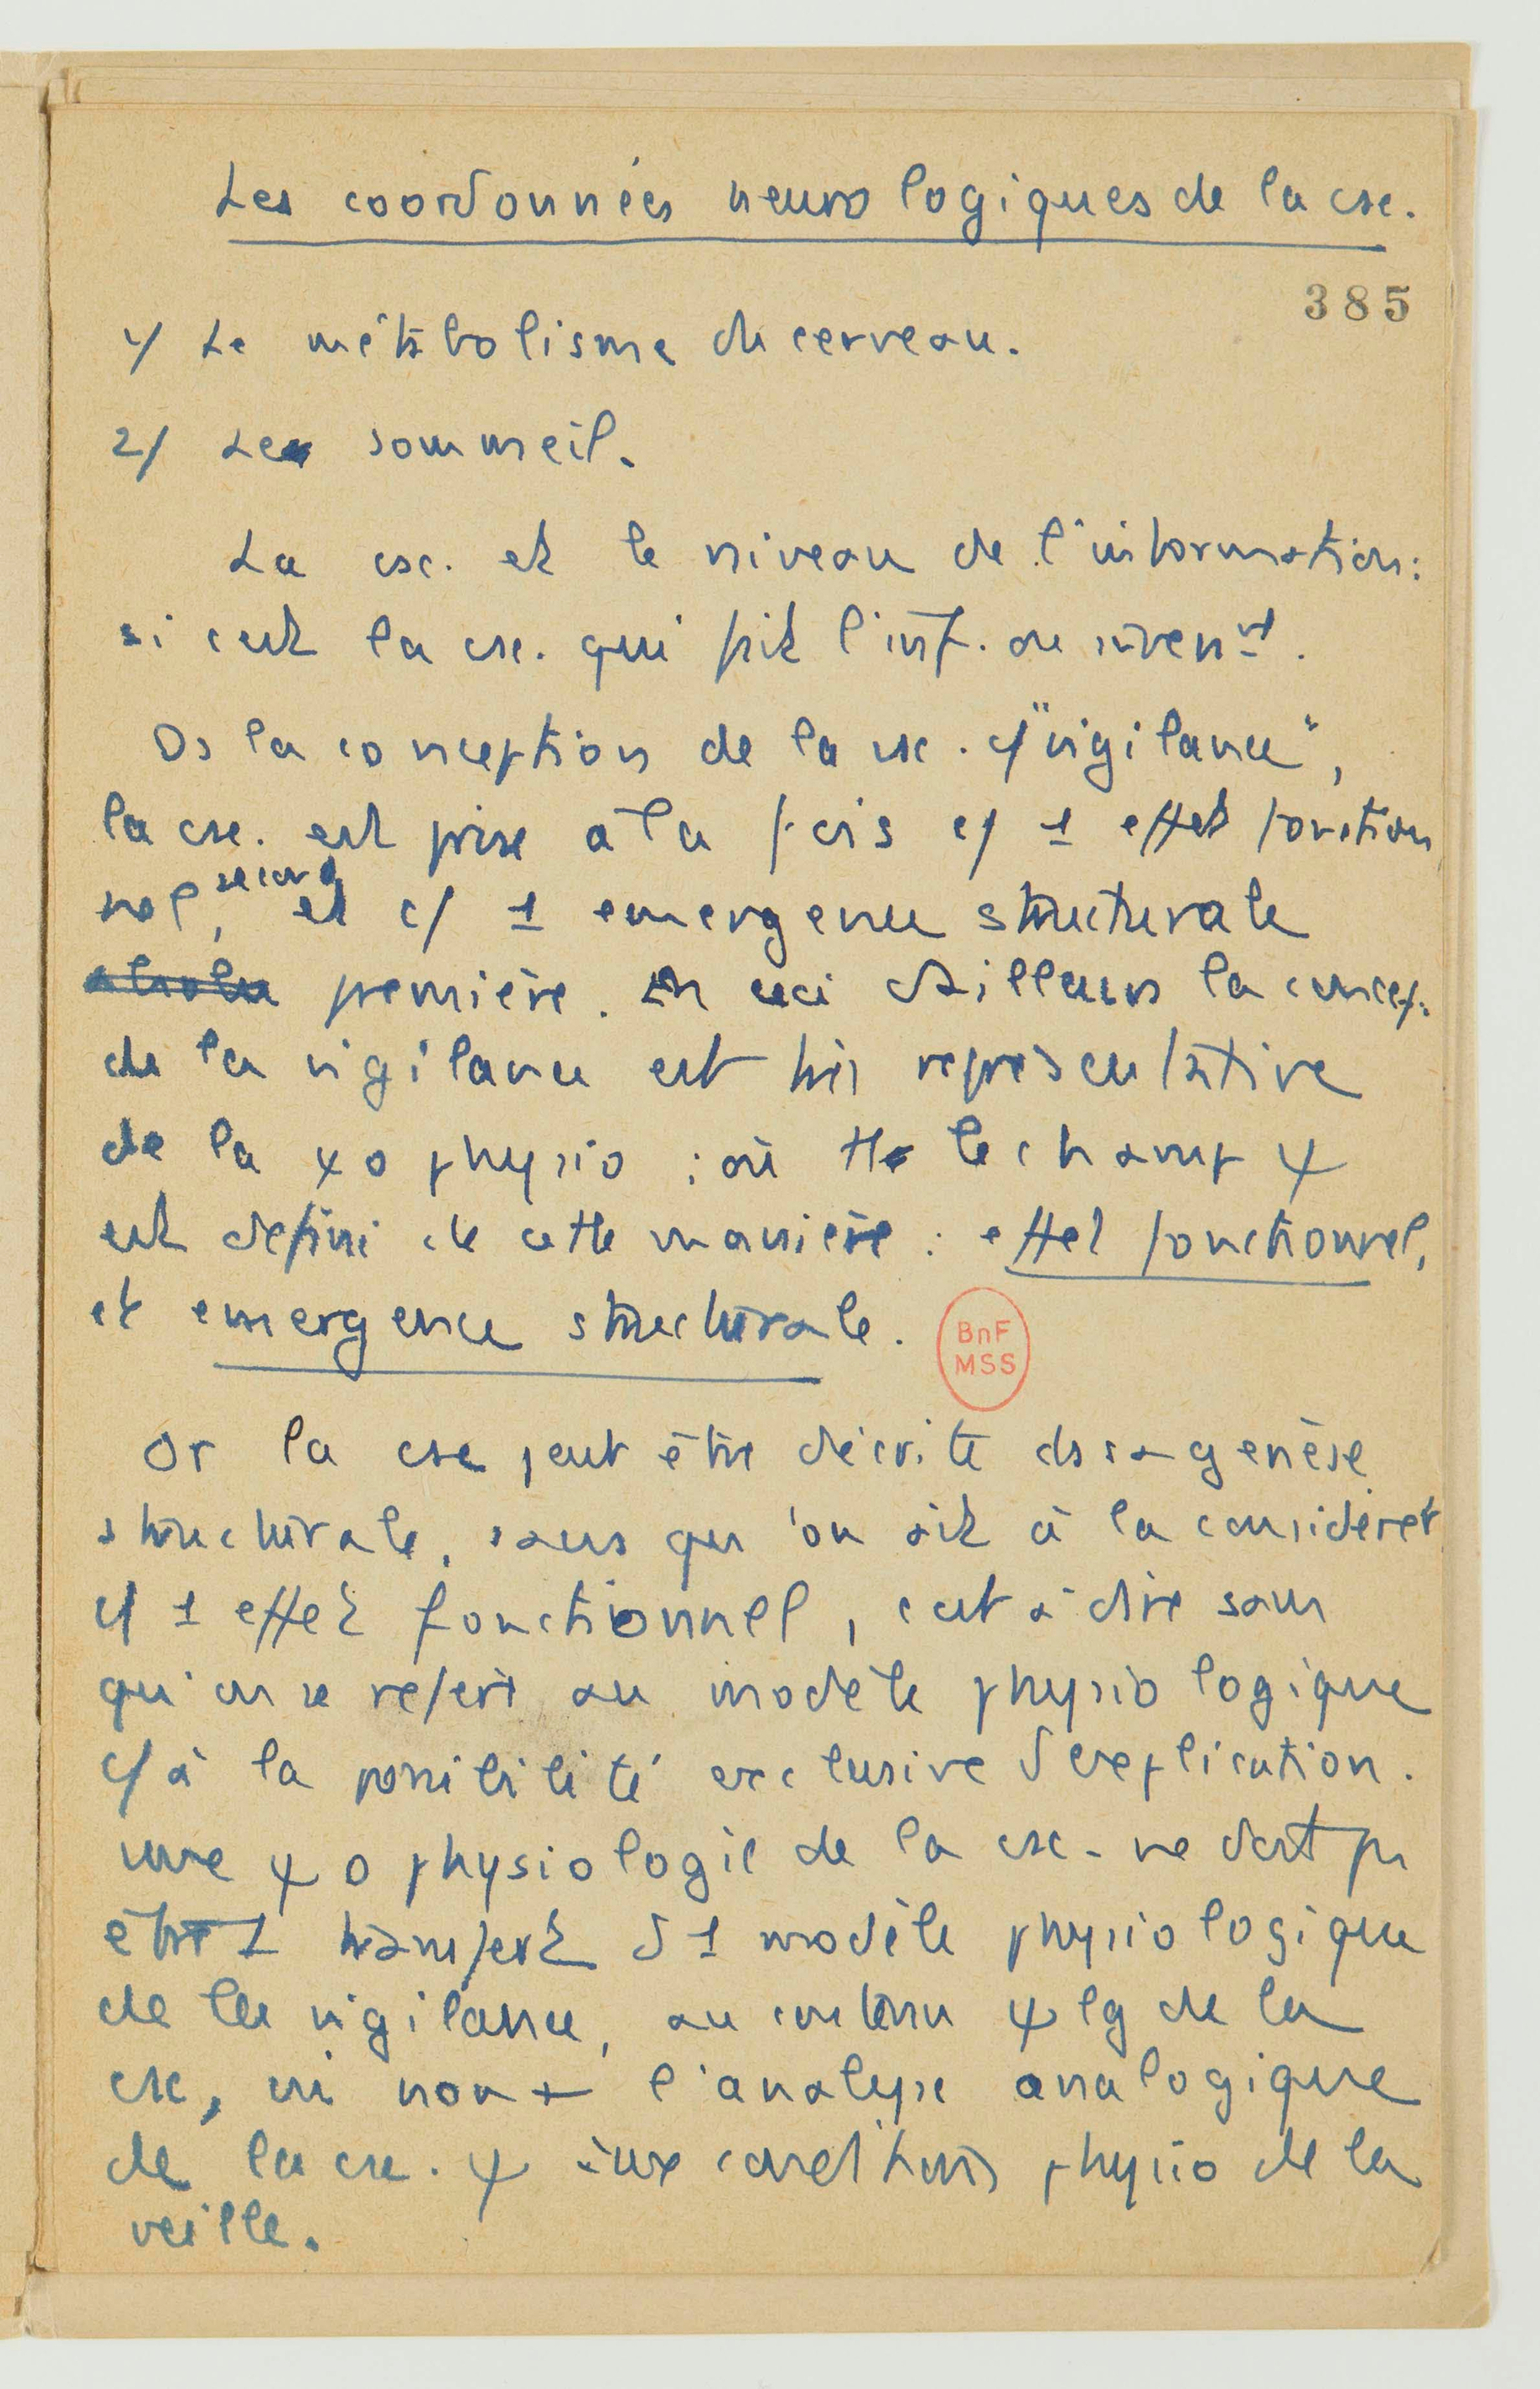 Les coordonnées neurologiques de la csc.
385
1/ Le métabolisme du cerveau.
2/ Le sommeil.
La csc. et le niveau de l'information:
si c'est la csc. qui fait l'inf. ou invent.
Ds la conception de la csc. c/ "vigilance",
la csc. est prise à la fois c/ 1 effet fonction
nel, second et c/ 1 emergence structurale
première. En ceci d'ailleurs la concep.
de la vigilance est très représentative
de la ψo physio : où tt le champ ψ
est défini de cette manière : effet fonctionnel,
et emergence structurale.
BnF
MSS
Or la csc peut être décrite ds sa genèse
structurale, sans qu'on ait à la considérer
c/ 1 effet fonctionnel, c'est à dire sans
qu'on se refere au modèle physiologique
c/ à la possibilité exclusive d'explication.
une ψo physiologie de la csc. ne doit pas
être 1 transfert d'1 modèle physiologique
de la vigilance, au contenu ψlg de la
csc, ni non + l'analyse analogique
de la csc. ψ aux conditions physio de la
veille.